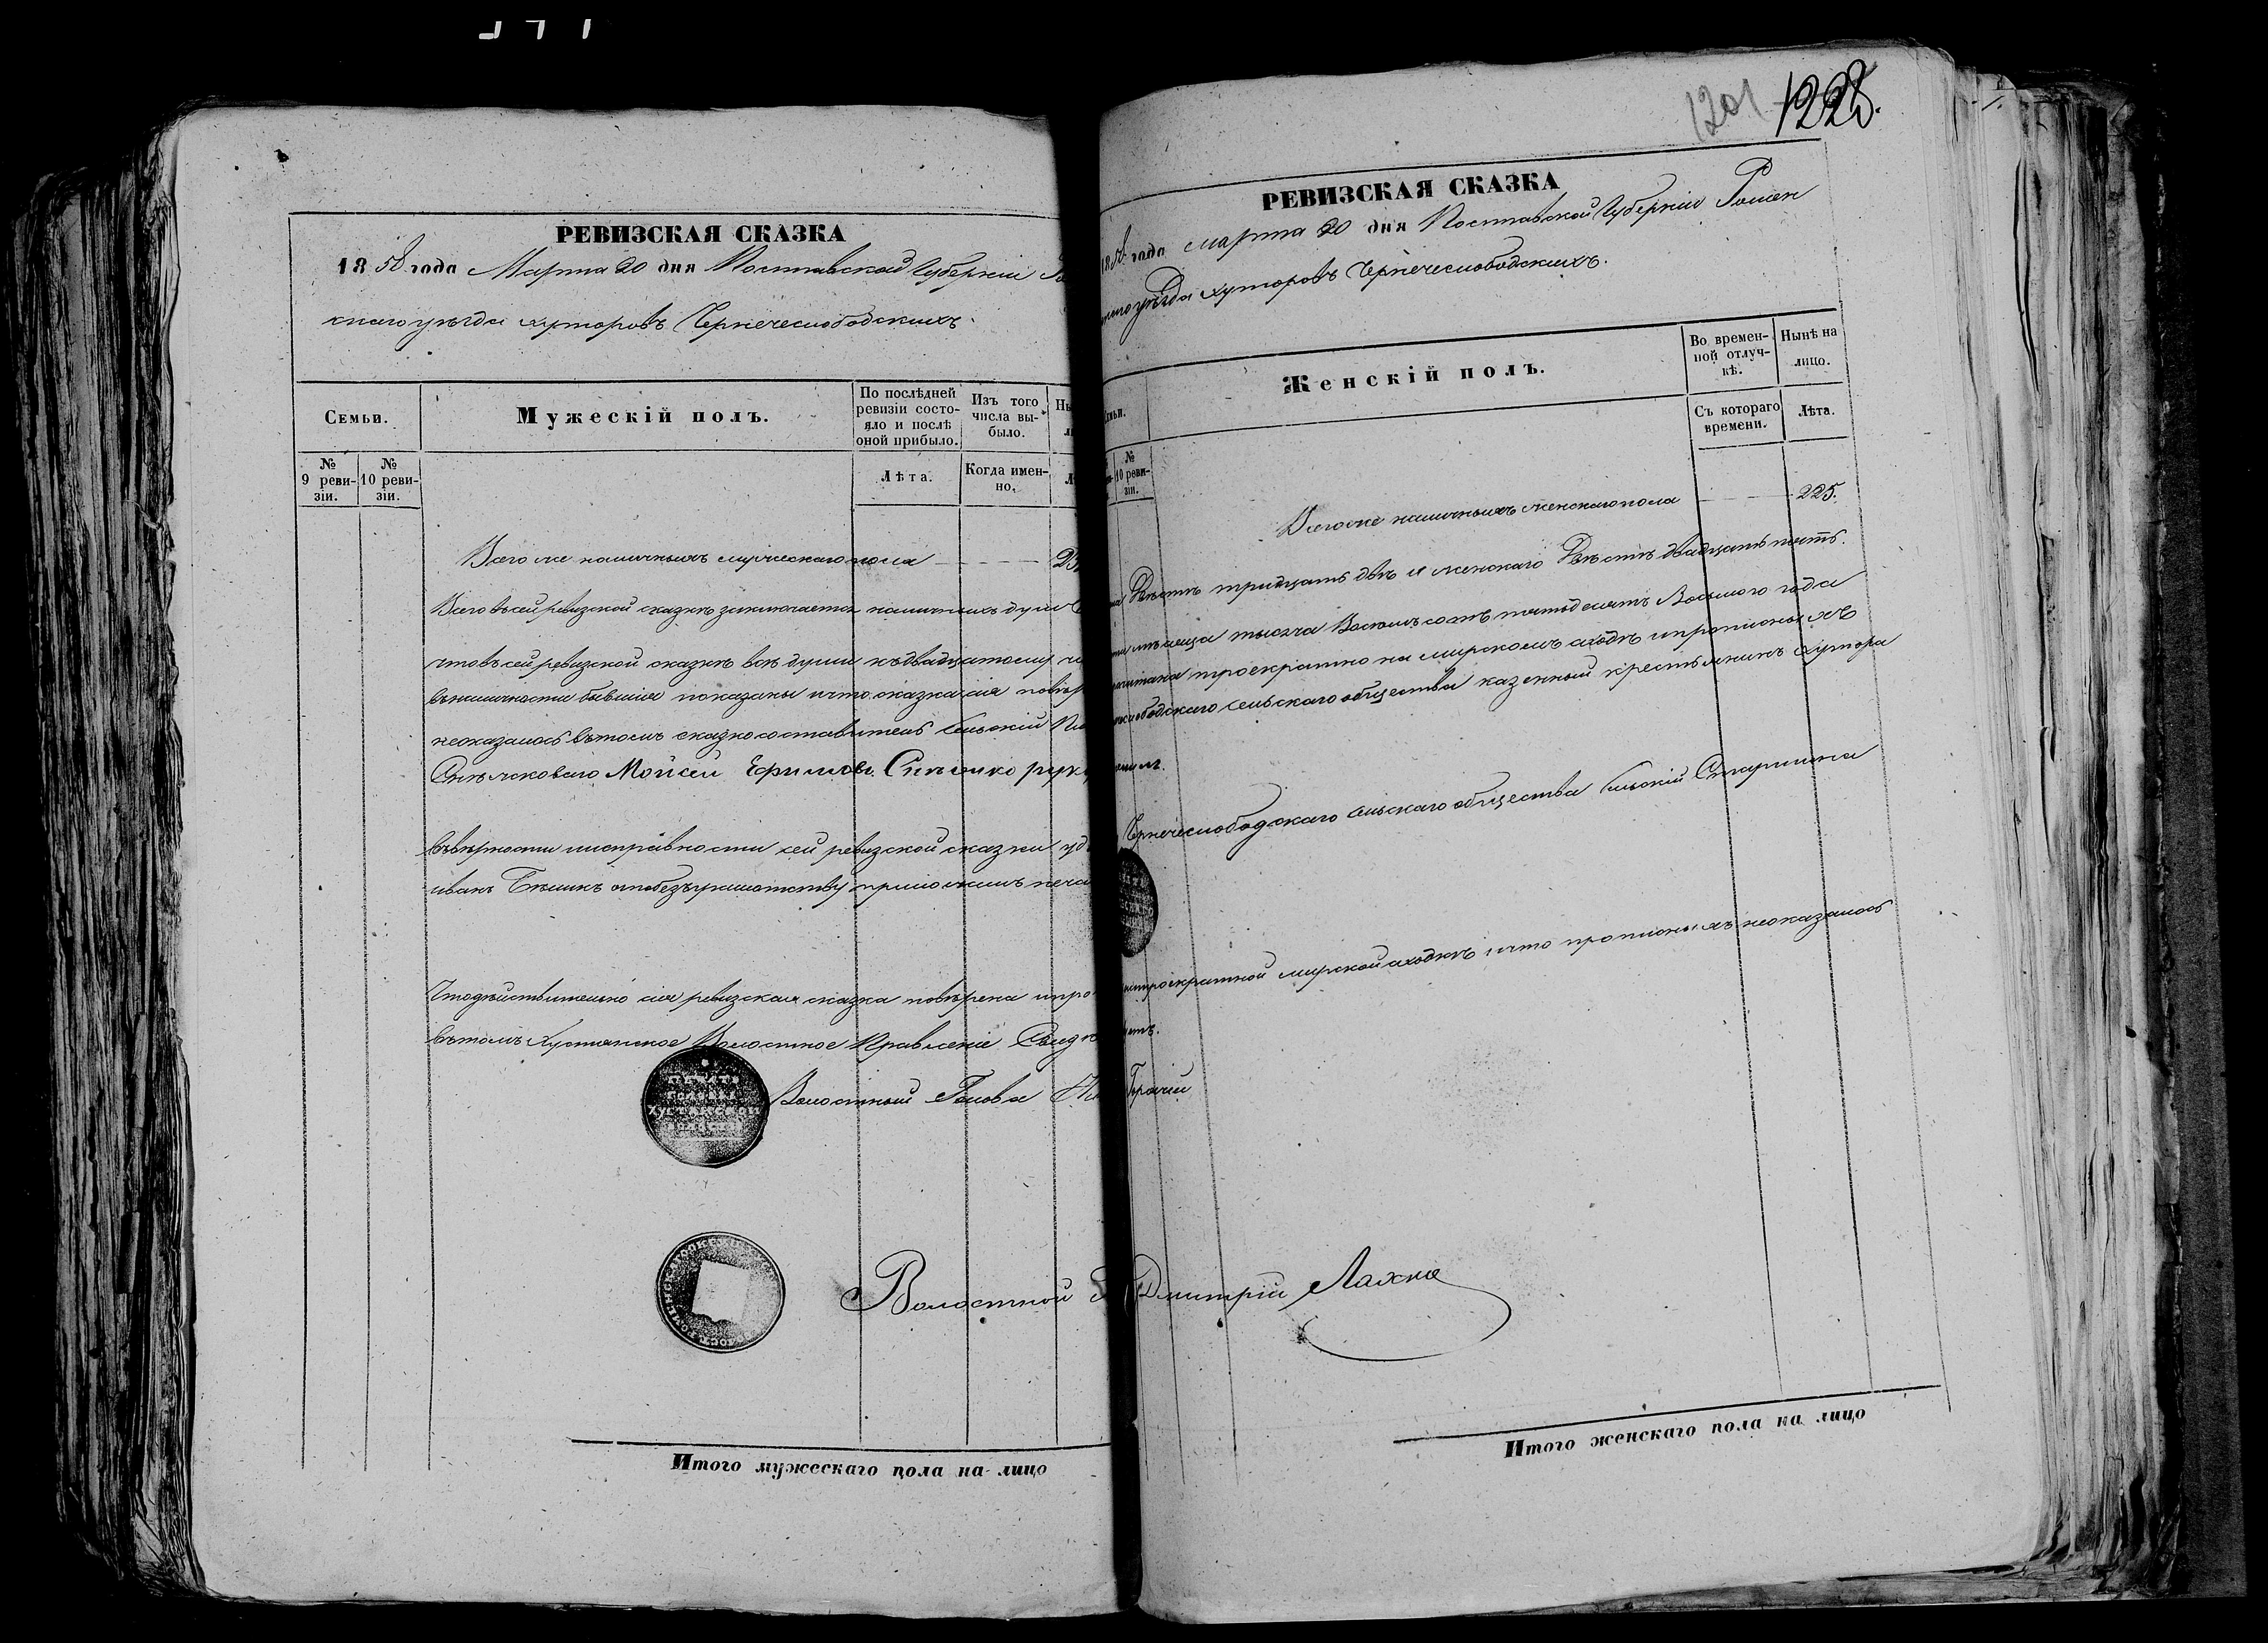 РЕВИЗСКАЯ СКАЗКА
1858 года Марта 20 дня Полтавской Губерніи Ро
скаго уѣзда хуторовъ Чернечеслободскихъ.
Семьи.
Мужескій полъ.
По послѣдней ревизіи состо-
яло и послѣ оной прибыло.
Изъ того числа вы-
было.
№ 9 реви-
зіи.
№ 10 реви-
зіи.
Лѣта.
Когда имен-
но.
Всего же наличныхъ мужескаго пола
Всего въ сей ревизской сказкѣ заключается наличныхъ душъ
что въ сей ревизской сказкѣ всѣ души къ двадцатому
въ наличности бывшія показаны и что сказка сія повѣр
неоказалось въ томъ сказкосоставитель Сельскій
Мойсей Ефимовъ
въ вѣрности и исправности сей ревизской сказки уд
иванъ а по безъграмотству приложилъ печа
Что дѣйствительно сія ревизская сказка повѣрена и про
въ томъ Хустянское Волостное Правленіе Свидѣ
Волостный Голова
Волостной
Итого мужескаго пола на лицо
1201
1228.
РЕВИЗСКАЯ СКАЗКА
1858 года марта 20 дня Полтавской Губерніи Ромен
скаго уѣзда хуторовъ Чернечеслободскихъ.
Женскій полъ.
Во времен-
ной отлуч-
кѣ.
Нынѣ на лицо.
№ 10 реви-
зіи.
Съ котораго времени.
Лѣта.
Всего же наличныхъ женскаго пола 225.
Двѣстѣ тридцать двѣ и женскаго Двѣстѣ двадцать пять.
мѣсяца тысяча Восемьсотъ пятьдесятъ Восьмого года
троекратно на мирскомъ сходѣ и прописныхъ
слободскаго сельскаго общества казенный крестьянинъ хутора
Чернечеслободскаго сельскаго общества Сельскій Старшина
троекратной мирской сходкѣ и что прописныхъ неоказалось
Дмитрій Лахно
Итого женскаго пола на лицо